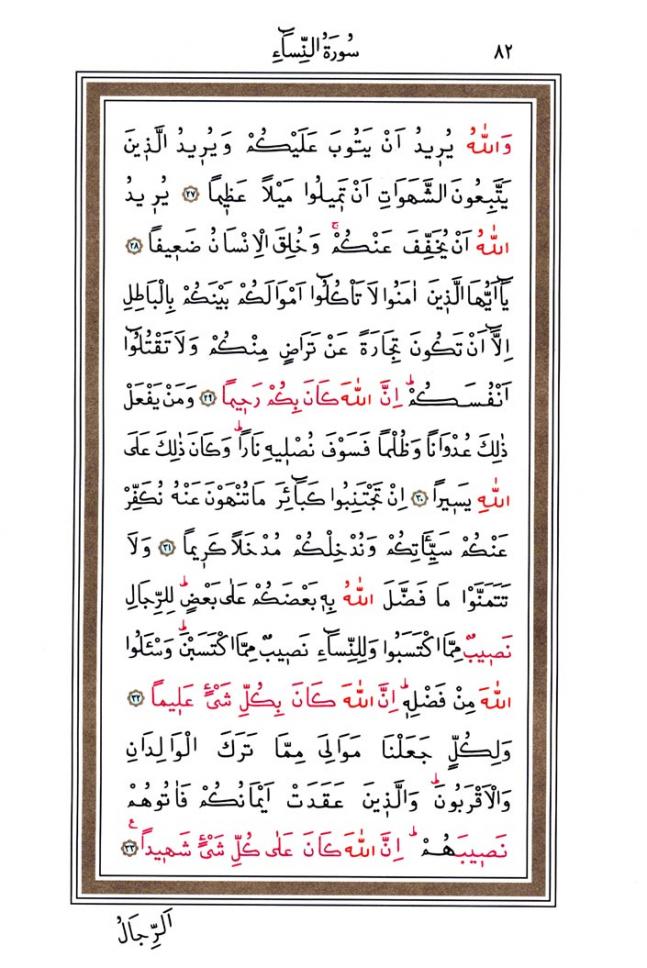 سُورَةُ النِّسَٓاءِ ٨٢
وَاللّٰهُ يُرٖيدُ اَنْ يَتُوبَ عَلَيْكُمْ وَيُرٖيدُ الَّذٖينَ
يَتَّبِعُونَ الشَّهَوَاتِ اَنْ تَمٖيلُوا مَيْلاً عَظٖيماً ٢٧ يُرٖيدُ
اللّٰهُ اَنْ يُخَفِّفَ عَنْكُمْۚ وَخُلِقَ الْاِنْسَانُ ضَعٖيفاً ٢٨
يَٓا اَيُّهَا الَّذٖينَ اٰمَنُوا لَا تَأْكُلُٓوا اَمْوَالَكُمْ بَيْنَكُمْ بِالْبَاطِلِ
اِلَّٓا اَنْ تَكُونَ تِجَارَةً عَنْ تَرَاضٍ مِنْكُمْ وَلَا تَقْتُلُٓوا
اَنْفُسَكُمْۜ اِنَّ اللّٰهَ كَانَ بِكُمْ رَحٖيماً ٢٩ وَمَنْ يَفْعَلْ
ذٰلِكَ عُدْوَاناً وَظُلْماً فَسَوْفَ نُصْلٖيهِ نَاراًۜ وَكَانَ ذٰلِكَ عَلَى
اللّٰهِ يَسٖيراً ٣٠ اِنْ تَجْتَنِبُوا كَبَٓائِرَ مَا تُنْهَوْنَ عَنْهُ نُكَفِّرْ
عَنْكُمْ سَيِّـَٔاتِكُمْ وَنُدْخِلْكُمْ مُدْخَلاً كَرٖيماً ٣١ وَلَا
تَتَمَنَّوْا مَا فَضَّلَ اللّٰهُ بِهٖ بَعْضَكُمْ عَلٰى بَعْضٍۜ لِلرِّجَالِ
نَصٖيبٌ مِمَّا اكْتَسَبُوا وَلِلنِّسَٓاءِ نَصٖيبٌ مِمَّا اكْتَسَبْنَۜ وَسْـَٔلُوا
اللّٰهَ مِنْ فَضْلِهٖۜ اِنَّ اللّٰهَ كَانَ بِكُلِّ شَيْءٍ عَلٖيماً ٣٢
وَلِكُلٍّ جَعَلْنَا مَوَالِيَ مِمَّا تَرَكَ الْوَالِدَانِ
وَالْاَقْرَبُونَۜ وَالَّذٖينَ عَقَدَتْ اَيْمَانُكُمْ فَاٰتُوهُمْ
نَصٖيبَهُمْۜ اِنَّ اللّٰهَ كَانَ عَلٰى كُلِّ شَيْءٍ شَهٖيداًࣖ ٣٣
اَلرِّجَالُ